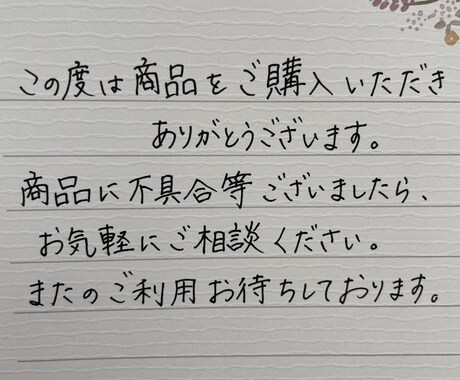 この度は商品をご購入いただき
ありがとうございます。
商品に不具合等ございましたら、
お気軽にご相談ください。
またのご利用お待ちしております。